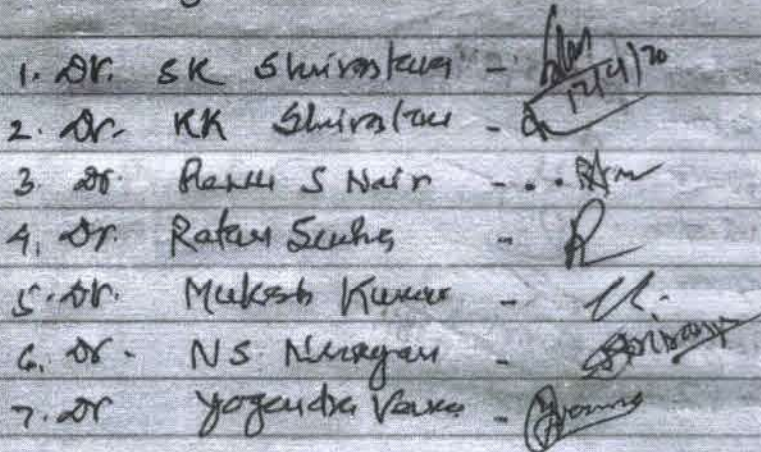 1. Dr. SK Shrivastava -
12/4/20
2. Dr. KK Shrivastava -
3. Dr. Renu S Nair -
4. Dr. Ratan Sinha -
5. Dr. Mukesh Kumar -
6. Dr. NS Narayan -
7. Dr Yogendra Verma -